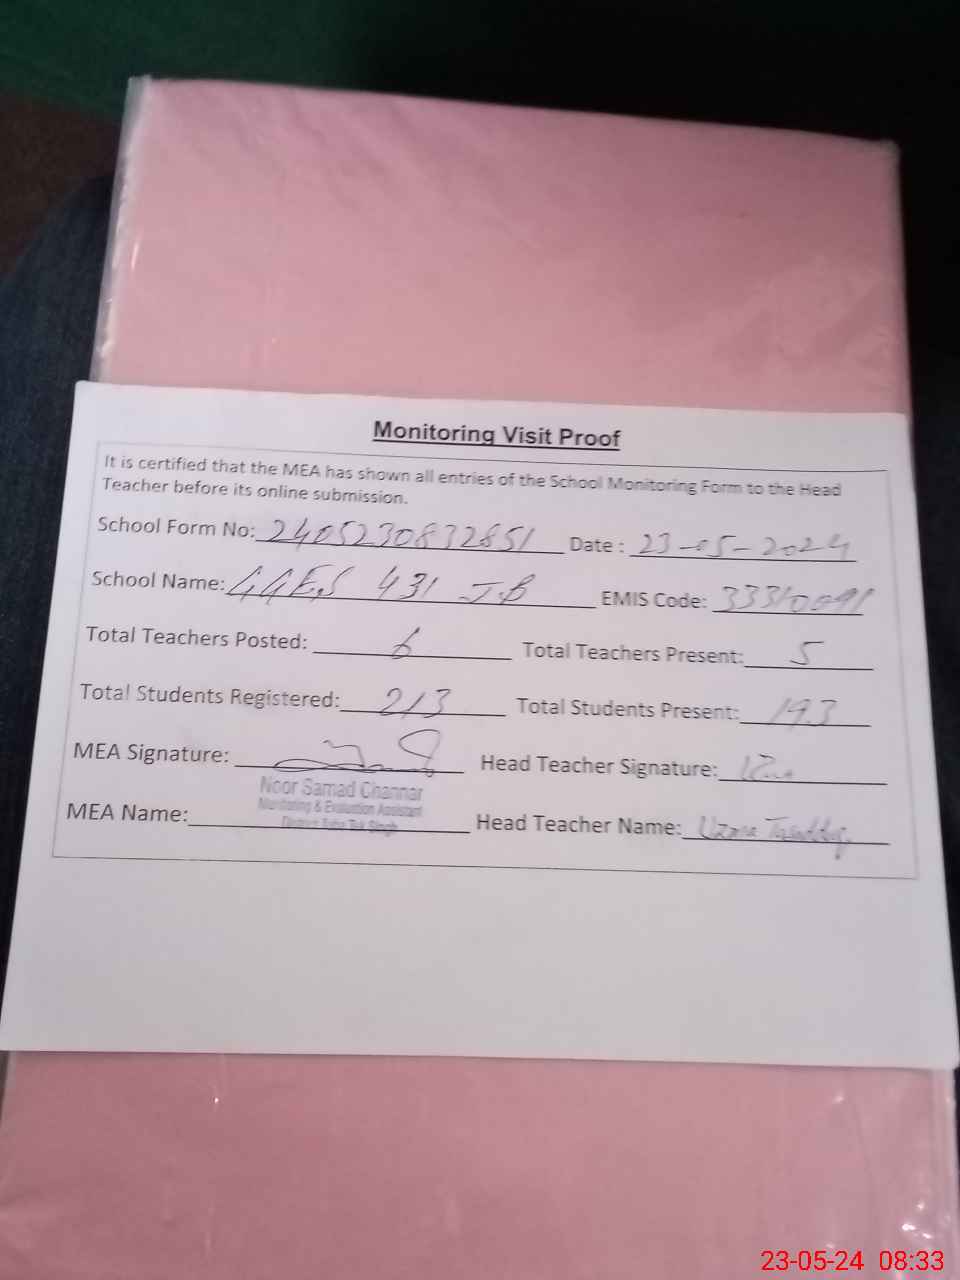 Monitoring Visit Proof
It is certified that the MEA has shown all entries of the School Monitoring Form to the Head
Teacher before its online submission.
School Form No: 2405230832851 Date : 23-05-2024
School Name: GGES 431 JB EMIS Code: 33310091
Total Teachers Posted: 6 Total Teachers Present: 5
Total Students Registered: 213 Total Students Present: 193
MEA Signature: Head Teacher Signature:
Noor Samad Channar
Monitoring & Evaluation Assistant
District Toba Tek Singh
MEA Name: Head Teacher Name: Uzma
23-05-24 08:33